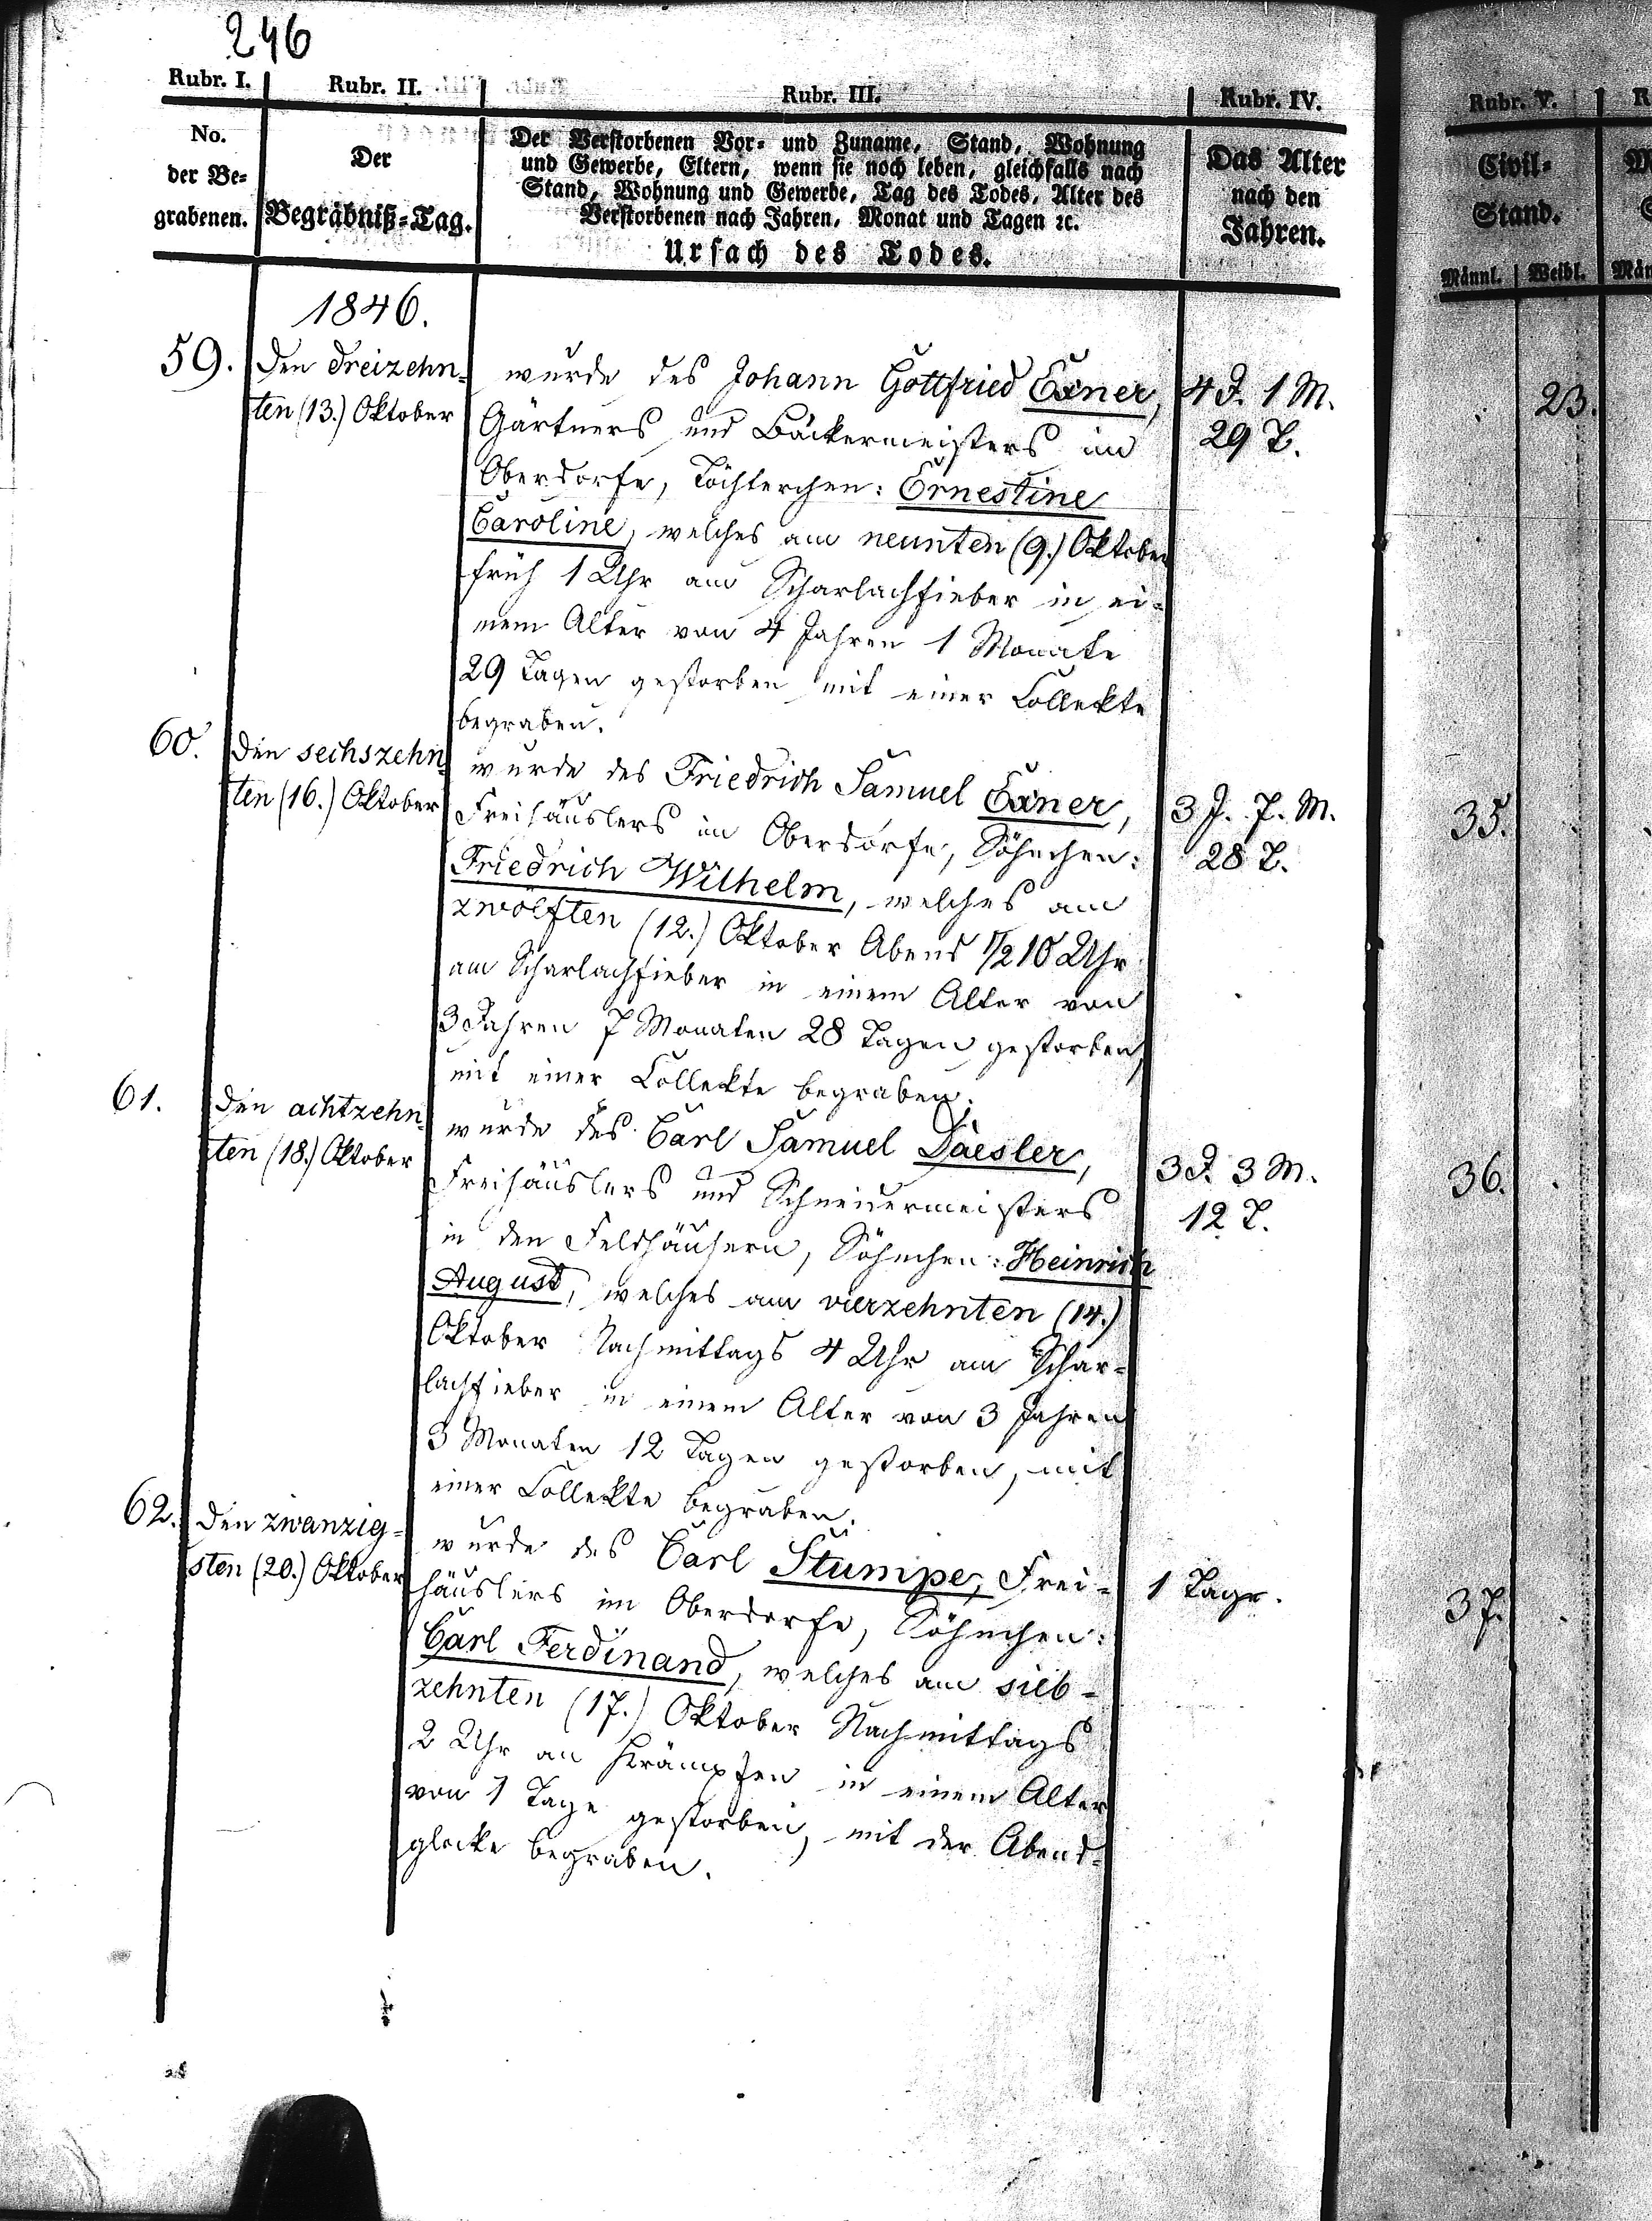 246
Rubr. I. Rubr. II. Rubr. III. Rubr. IV. Rubr. V.
No.
der Be-
grabenen.
Der
Begräbniß-Tag.
Der Verstorbenen Vor- und Zuname, Stand, Wohnung
und Gewerbe, Eltern, wenn sie noch leben, gleichfalls nach
Stand, Wohnung und Gewerbe, Tag des Todes, Alter des
Verstorbenen nach Jahren, Monat und Tagen ꝛc.
Ursach des Todes.
Das Alter
nach den
Jahren.
Civil-
Stand.
Männl. Weibl.
1846.
59.
Den dreizehn-
ten (13.) Oktober
wurde des Johann Gottfried Exner,
Gärtners und Bäckermeisters im
Oberdorfe, Töchterchen: Ernestine
Caroline, welches am neunten (9.) Oktober
früh 1 Uhr am Scharlachfieber in ei-
nem Alter von 4 Jahren 1 Monate
29 Tagen gestorben mit einer Collekte
begraben.
4 J. 1 M.
29 T.
23.
60.
Den sechszehn-
ten (16.) Oktober
wurde des Friedrich Samuel Exner,
Freihäuslers im Oberdorfe, Söhnchen:
Friedrich Wilhelm, welches am
zwölften (12.) Oktober Abend 1/2 10 Uhr
am Scharlachfieber in einem Alter von
3 Jahren 7 Monaten 28 Tagen gestorben,
mit einer Collekte begraben.
3 J. 7. M.
28 T.
35.
61.
Den achtzehn-
ten (18.) Oktober
wurde des Carl Samuel Daesler,
Freihäuslers und Schneidermeisters
in den Feldhäusern, Söhnchen: Heinrich
August, welches am vierzehnten (14.)
Oktober Nachmittags 4 Uhr am Schar-
lachfieber in einem Alter von 3 Jahren
3 Monaten 12 Tagen gestorben, mit
einer Collekte begraben.
3 J. 3 M.
12 T.
36.
62.
Den zwanzig-
sten (20.) Oktober
wurde des Carl Stumpe, Frei-
häuslers im Oberdorfe, Söhnchen:
Carl Ferdinand, welches am sieb-
zehnten (17.) Oktober Nachmittags
2 Uhr an Krämpfen in einem Alter
von 1 Tage gestorben, mit der Abend-
glocke begraben.
1 Tage.
37.